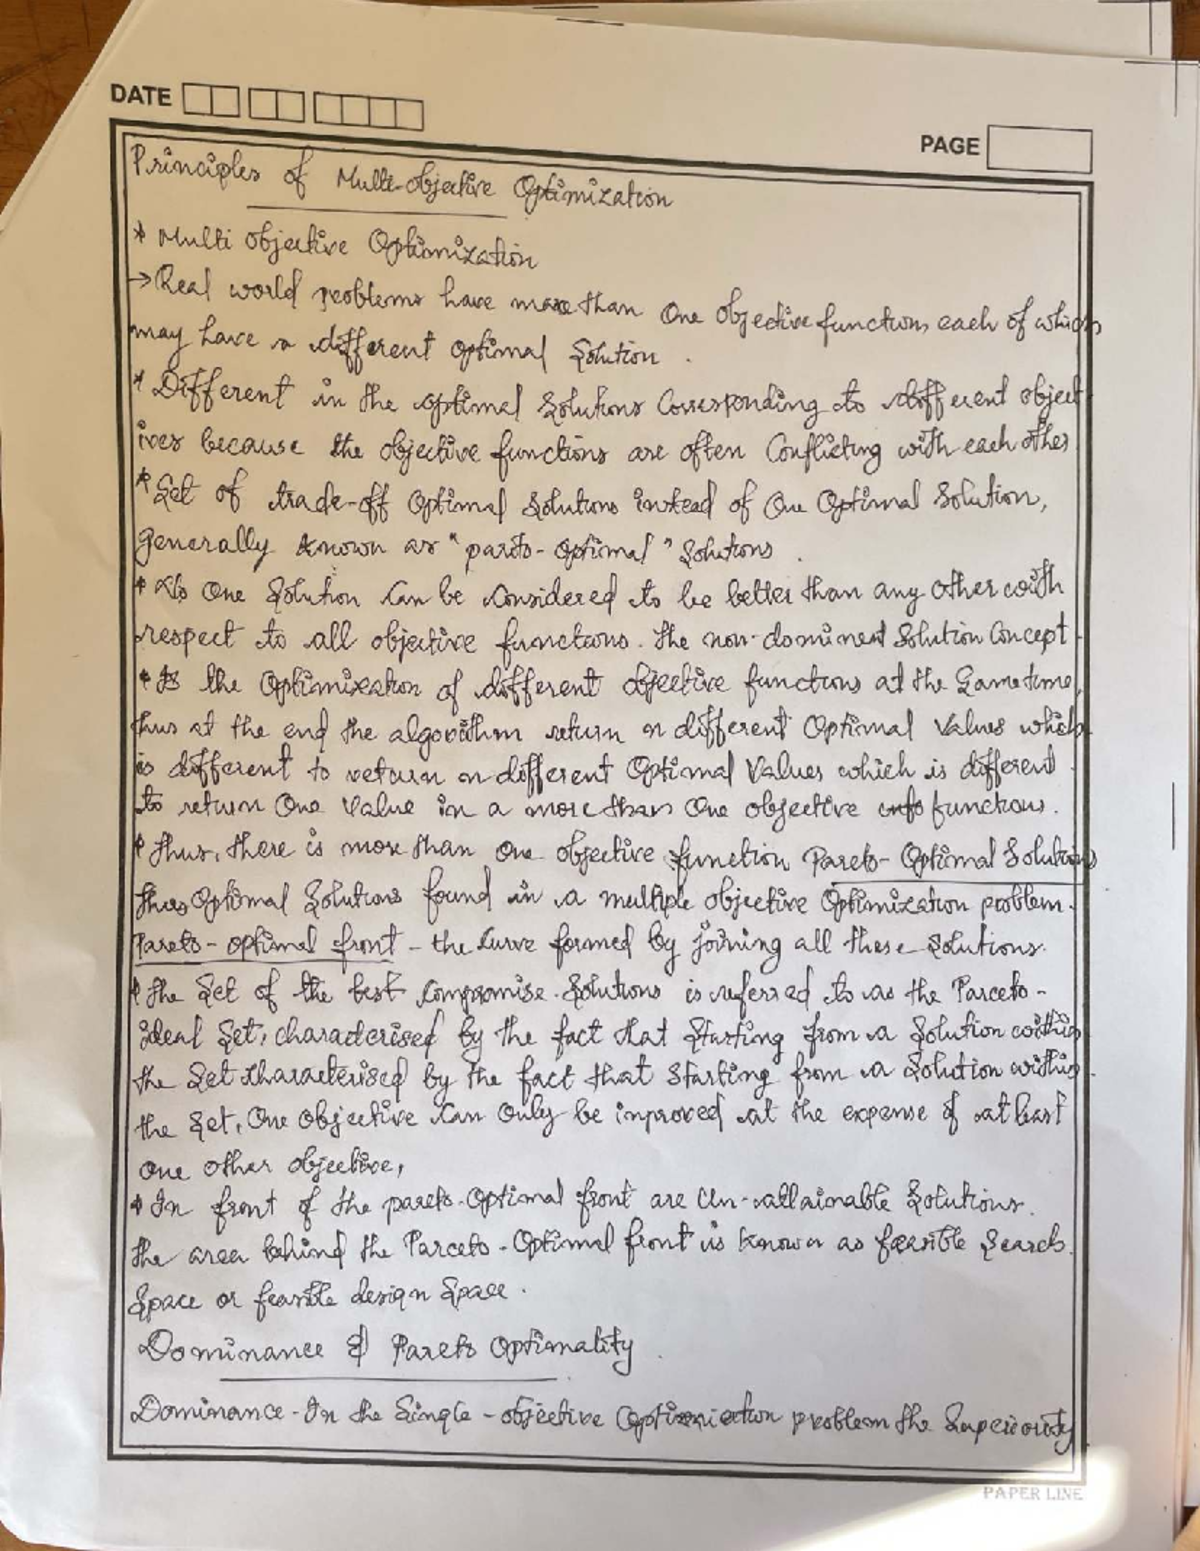 DATE
PAGE
Principles of Multi-objective Optimization
* Multi objective Optimization
→ Real world problems have more than One objective functions each of which
may have a different optimal Solution .
* Different in the optimal Solutions Corresponding to different object
ives because the objective functions are often Conflicting with each other
* Set of trade-off Optimal Solutions instead of One Optimal Solution,
Generally known as "pareto-optimal" Solutions .
* No One Solution Can be Considered to be better than any other with
respect to all objective functions. The non-dominent Solution Concept
* Is the Optimization of different objective functions at the Same time,
thus at the end the algorithm return n different Optimal Values which
is different to return n different Optimal Values which is different
to return One Value in a more than One objective functions.
* Thus, there is more than one objective function Pareto-Optimal Solutions
Optimal Solutions found in a multiple objective Optimization problem.
Pareto-optimal front - the Curve formed by joining all these Solutions.
* The Set of the best Compromise Solutions is referred to as the Parceto-
ideal Set, characterised by the fact that Starting from a Solution within
the Set characterised by the fact that Starting from a Solution within
the Set, One objective Can Only be improved at the expense of at least
One other objective,
* In front of the pareto-Optimal front are Un-attainable Solutions.
the area behind the Parceto-Optimal front is known as feasible Search
Space or feasible design Space.
Dominance & Pareto Optimality
Dominance - In the Single-objective Optimization problem the Superiority
PAPER LINE